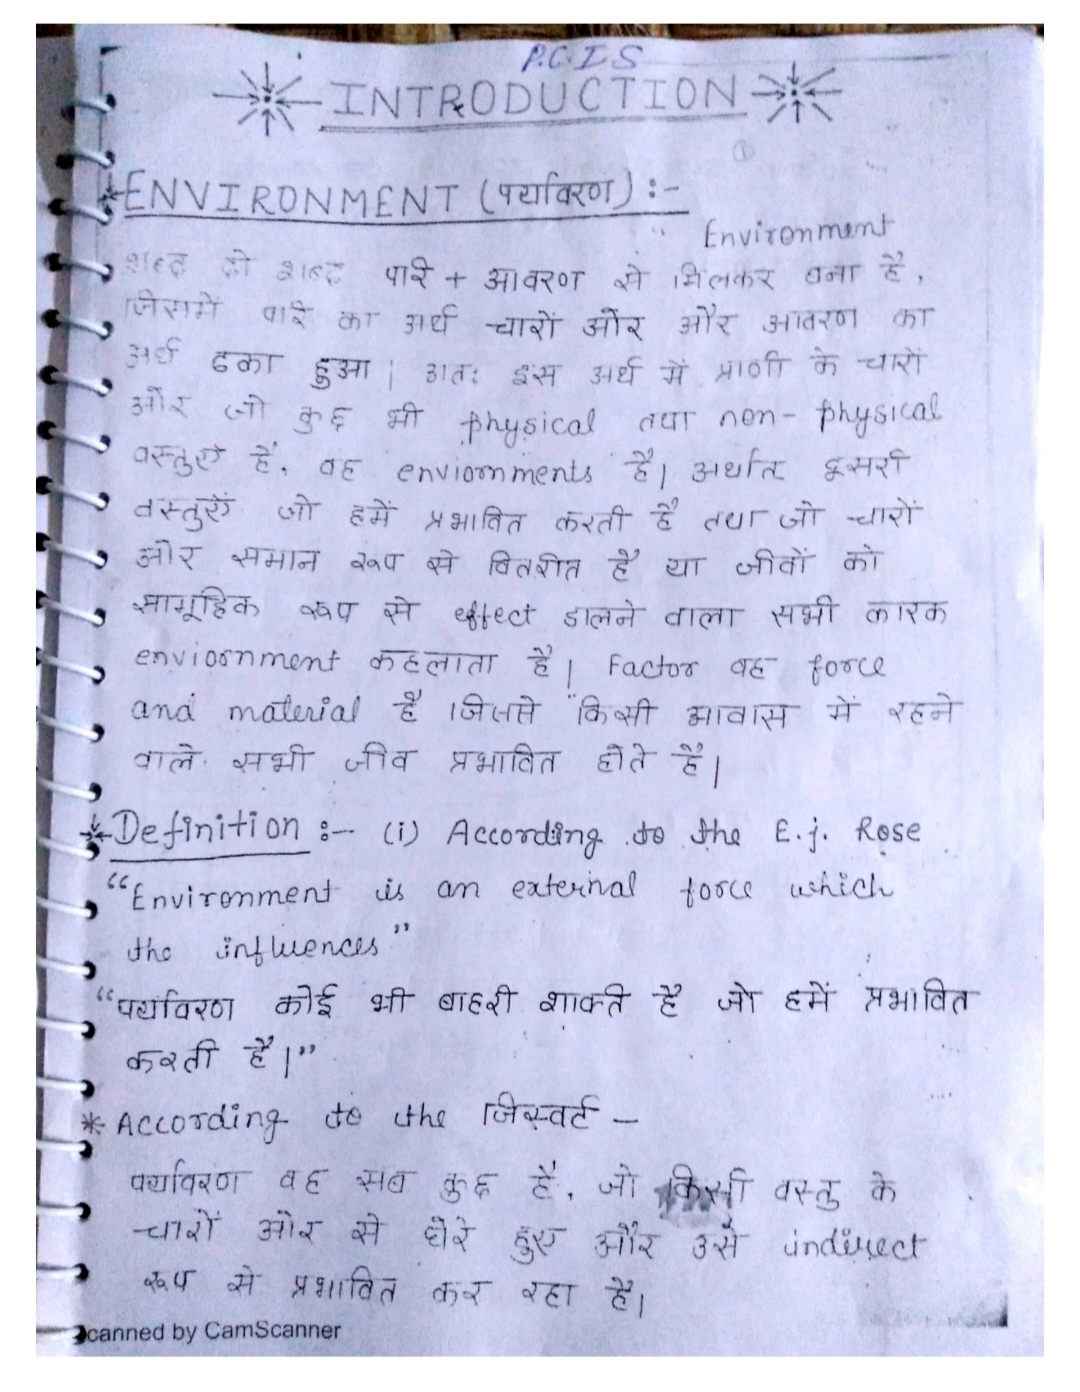 P.C.I.S
INTRODUCTION
①
*ENVIRONMENT (पर्यावरण) :-
" Environment
शब्द दो शब्द परि + आवरण से मिलकर बना है,
जिसमें परि का अर्थ चारों ओर और आवरण का
अर्थ ढका हुआ | अतः इस अर्थ में प्राणी के चारों
ओर जो कुछ भी physical तथा non-physical
वस्तुएँ हैं, वह enviornments है| अर्थात दूसरी
वस्तुएँ जो हमें प्रभावित करती है तथा जो चारों
ओर समान रूप से वितरीत है या जीवों को
सामूहिक रूप से effect डालने वाला सभी कारक
enviornment कहलाता है| Factor वह force
and material है जिससे किसी आवास में रहने
वाले सभी जीव प्रभावित होते है|
*Definition :- (i) According to the E.j. Rose
“Environment is an external force which
the influences”
“पर्यावरण कोई भी बाहरी शक्ति है जो हमें प्रभावित
करती है|”
* According to the जिस्बर्ट –
पर्यावरण वह सब कुछ है, जो किसी वस्तु के
चारों ओर से घेरे हुए और उसे indirect
रूप से प्रभावित कर रहा है|
canned by CamScanner